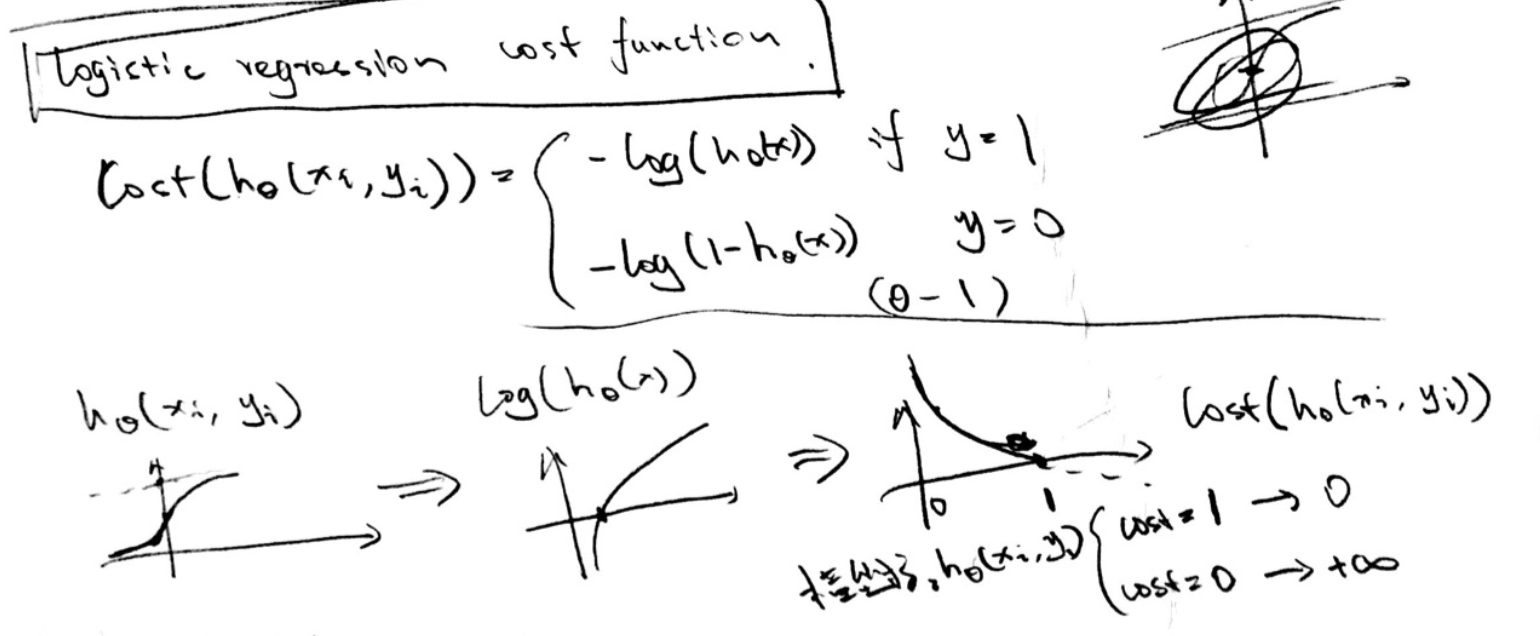 Logistic regression cost function.
Cost(hθ(xi, yi)) = { -log(hθ(x)) if y = 1
-log(1-hθ(x)) y = 0
(0-1)
hθ(xi, yi)
log(hθ(x))
Cost(hθ(xi, yi))
⇒
⇒
0
1
hθ(xi, yi) { cost = 1 → 0
cost = 0 → +∞